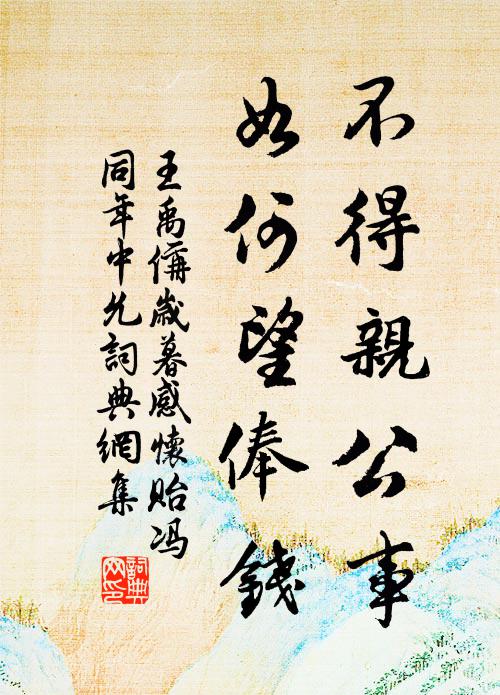 不得親公事
如何望俸錢
王禹偁歲暮感懷貽冯
同年中允詞典網集
詞典
网印